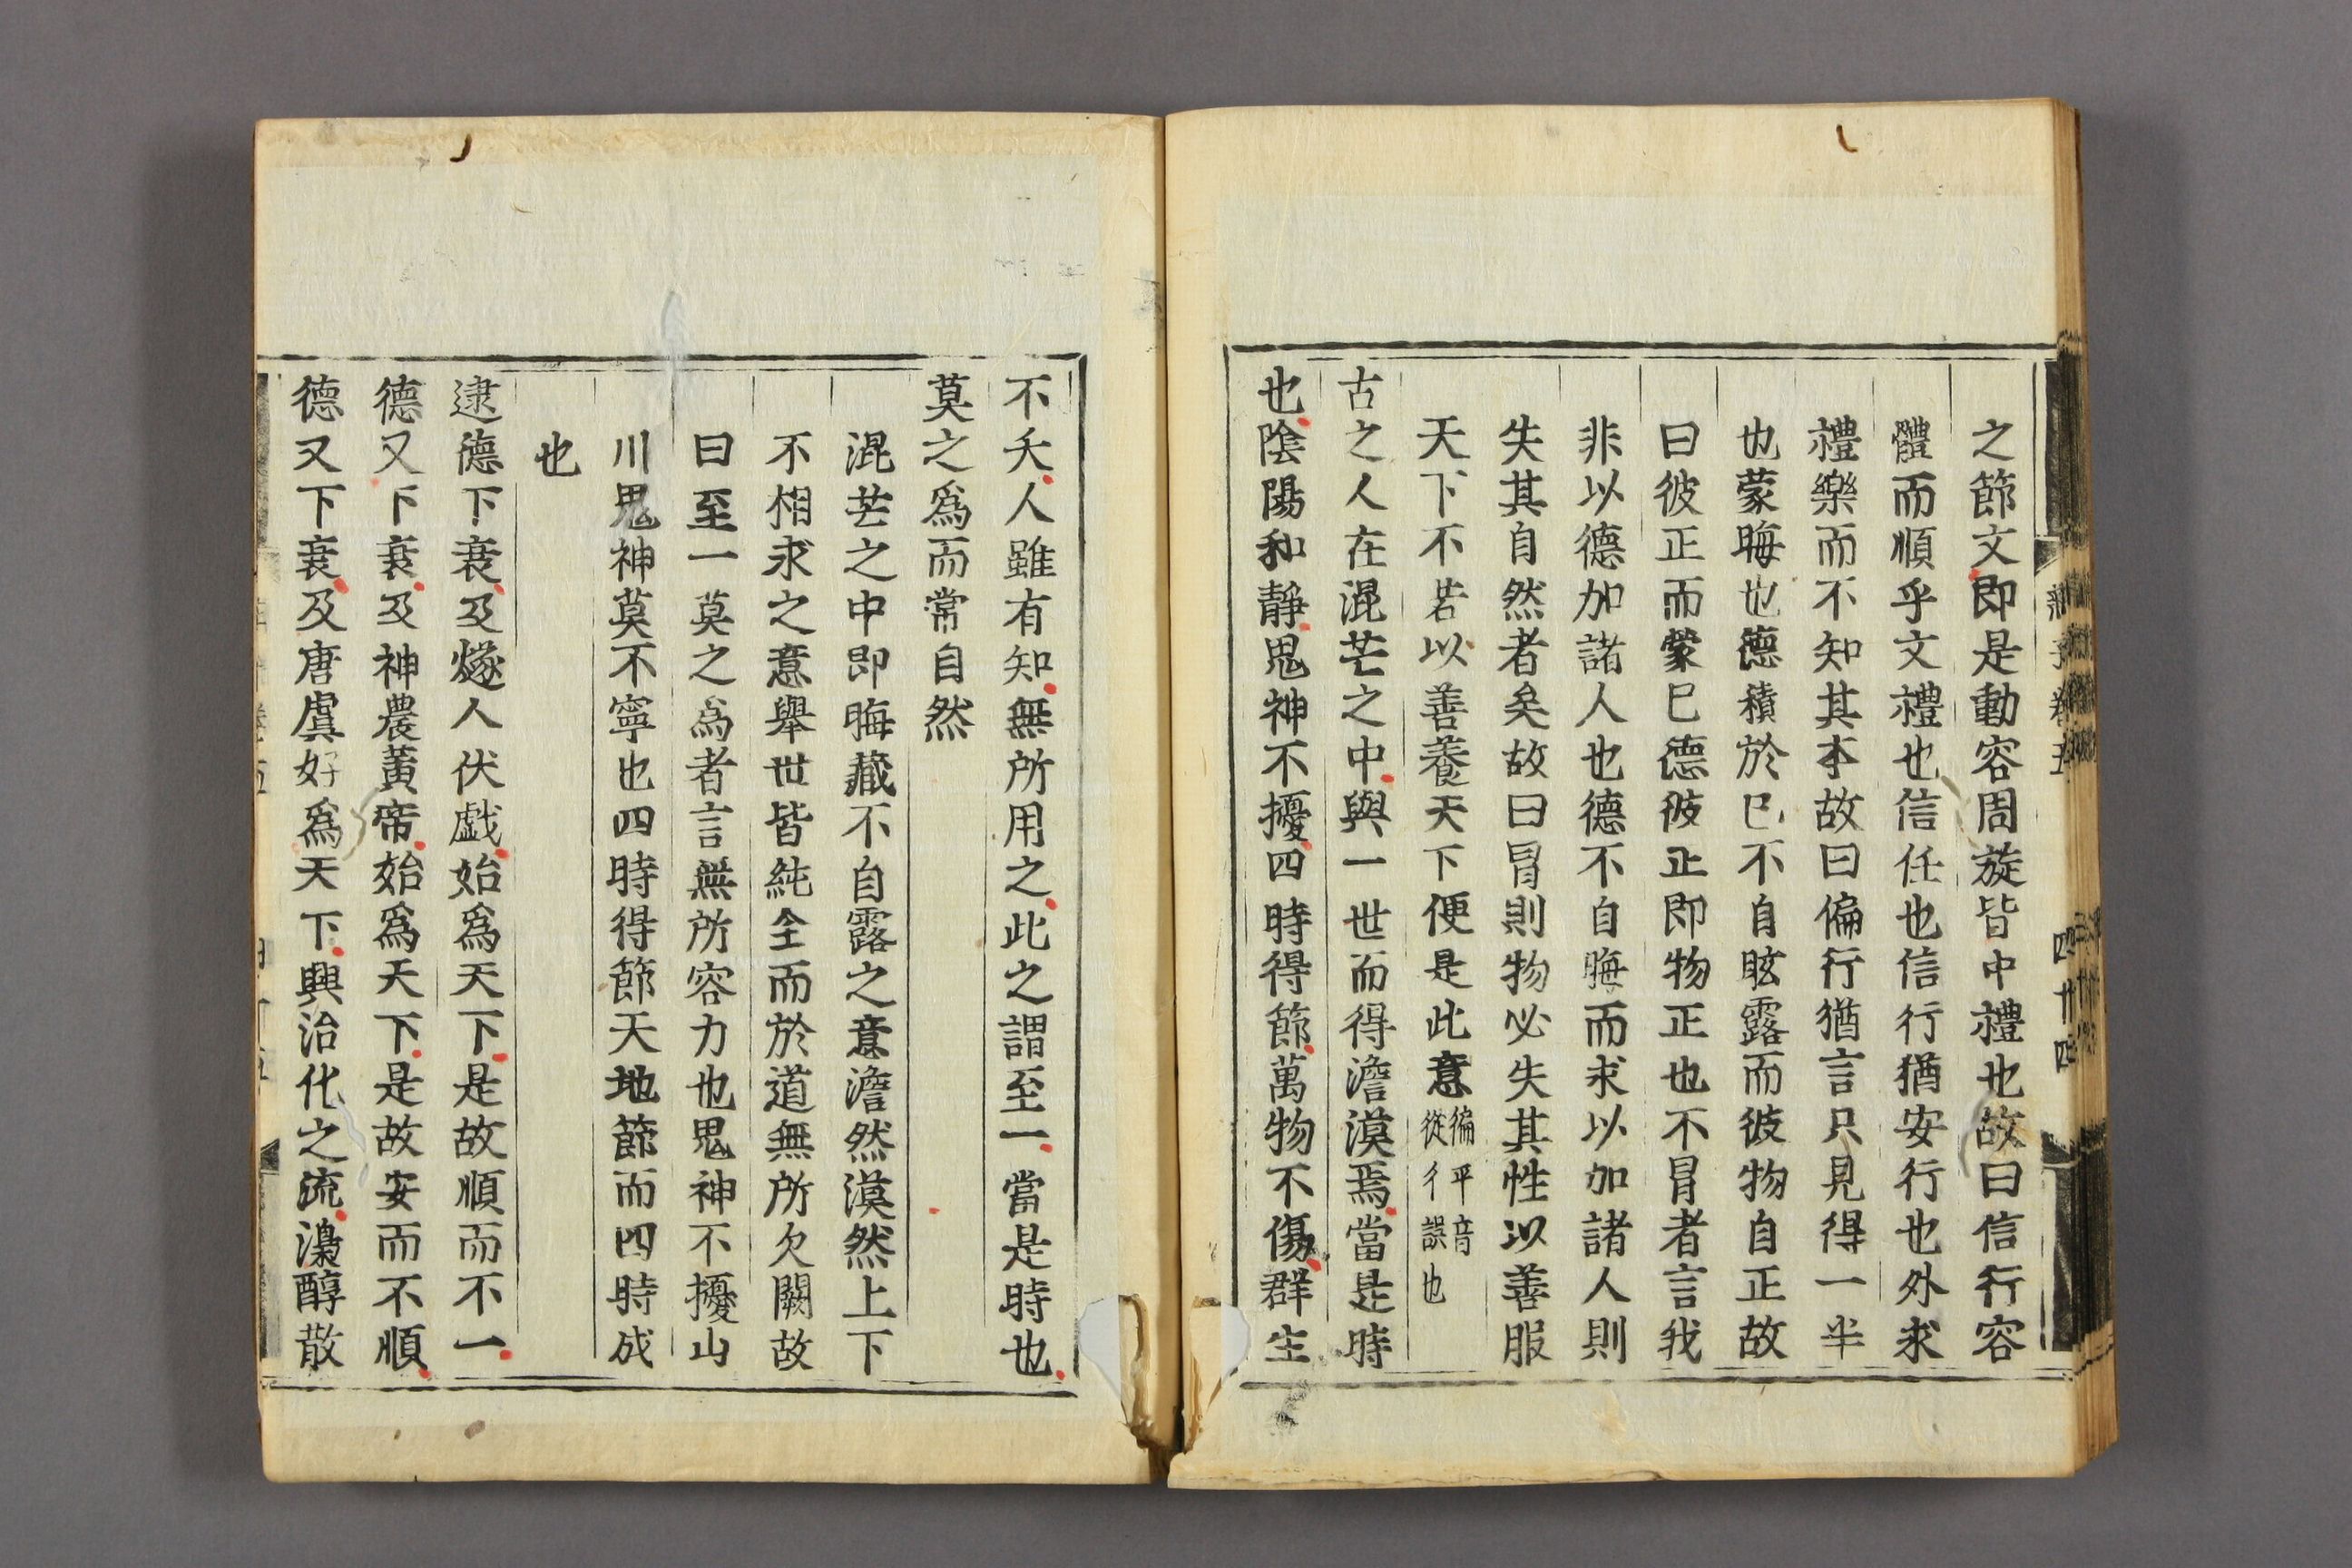 之節文即是動容周旋皆中禮也故曰信行容
體而順乎文禮也信任也信行猶安行也外求
禮樂而不知其本故曰偏行猶言只見得一半
也蒙晦也德積於已不自眩露而彼物自正故
曰彼正而蒙已德彼正即物正也不冒者言我
非以德加諸人也德不自晦而求以加諸人則
失其自然者矣故曰冒則物必失其性以善服
天下不若以善養天下便是此意徧平音
從彳誤也
古之人在混芒之中與一世而得澹漠焉當是時
也陰陽和靜鬼神不擾四時得節萬物不傷群生
不夭人雖有知無所用之此之謂至一當是時也
莫之爲而常自然
混芒之中即晦藏不自露之意澹然漠然上下
不相求之意舉世皆純全而於道無所欠闕故
曰至一莫之爲者言無所容力也鬼神不擾山
川鬼神莫不寧也四時得節天地節而四時成
也
逮德下衰及燧人伏戲始爲天下是故順而不一
德又下衰及神農黃帝始爲天下是故安而不順
德又下衰及唐虞好爲天下興治化之流澆醇散